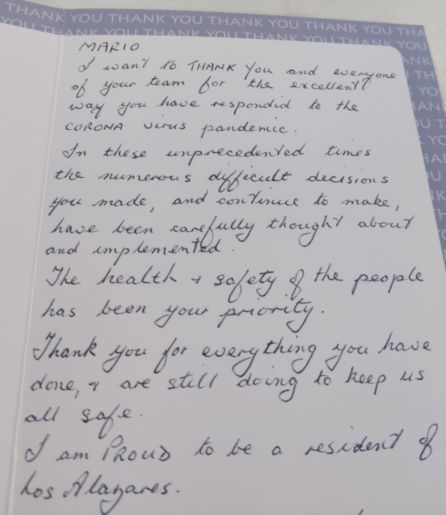 THANK YOU THANK YOU THANK YOU THANK YOU THANK YOU THA
YOU THANK YOU THANK YOU THANK YOU THANK YOU
MARIO
I want to THANK You and everyone
of your team for the excellent
way you have responded to the
CORONA virus pandemic.
In these unprecedented times
the numerous difficult decisions
you made, and continue to make,
have been carefully thought about
and implemented.
The health + safety of the people
has been your priority.
Thank you for everything you have
done, & are still doing to keep us
all safe.
I am PROUD to be a resident of
Los Alcazares.